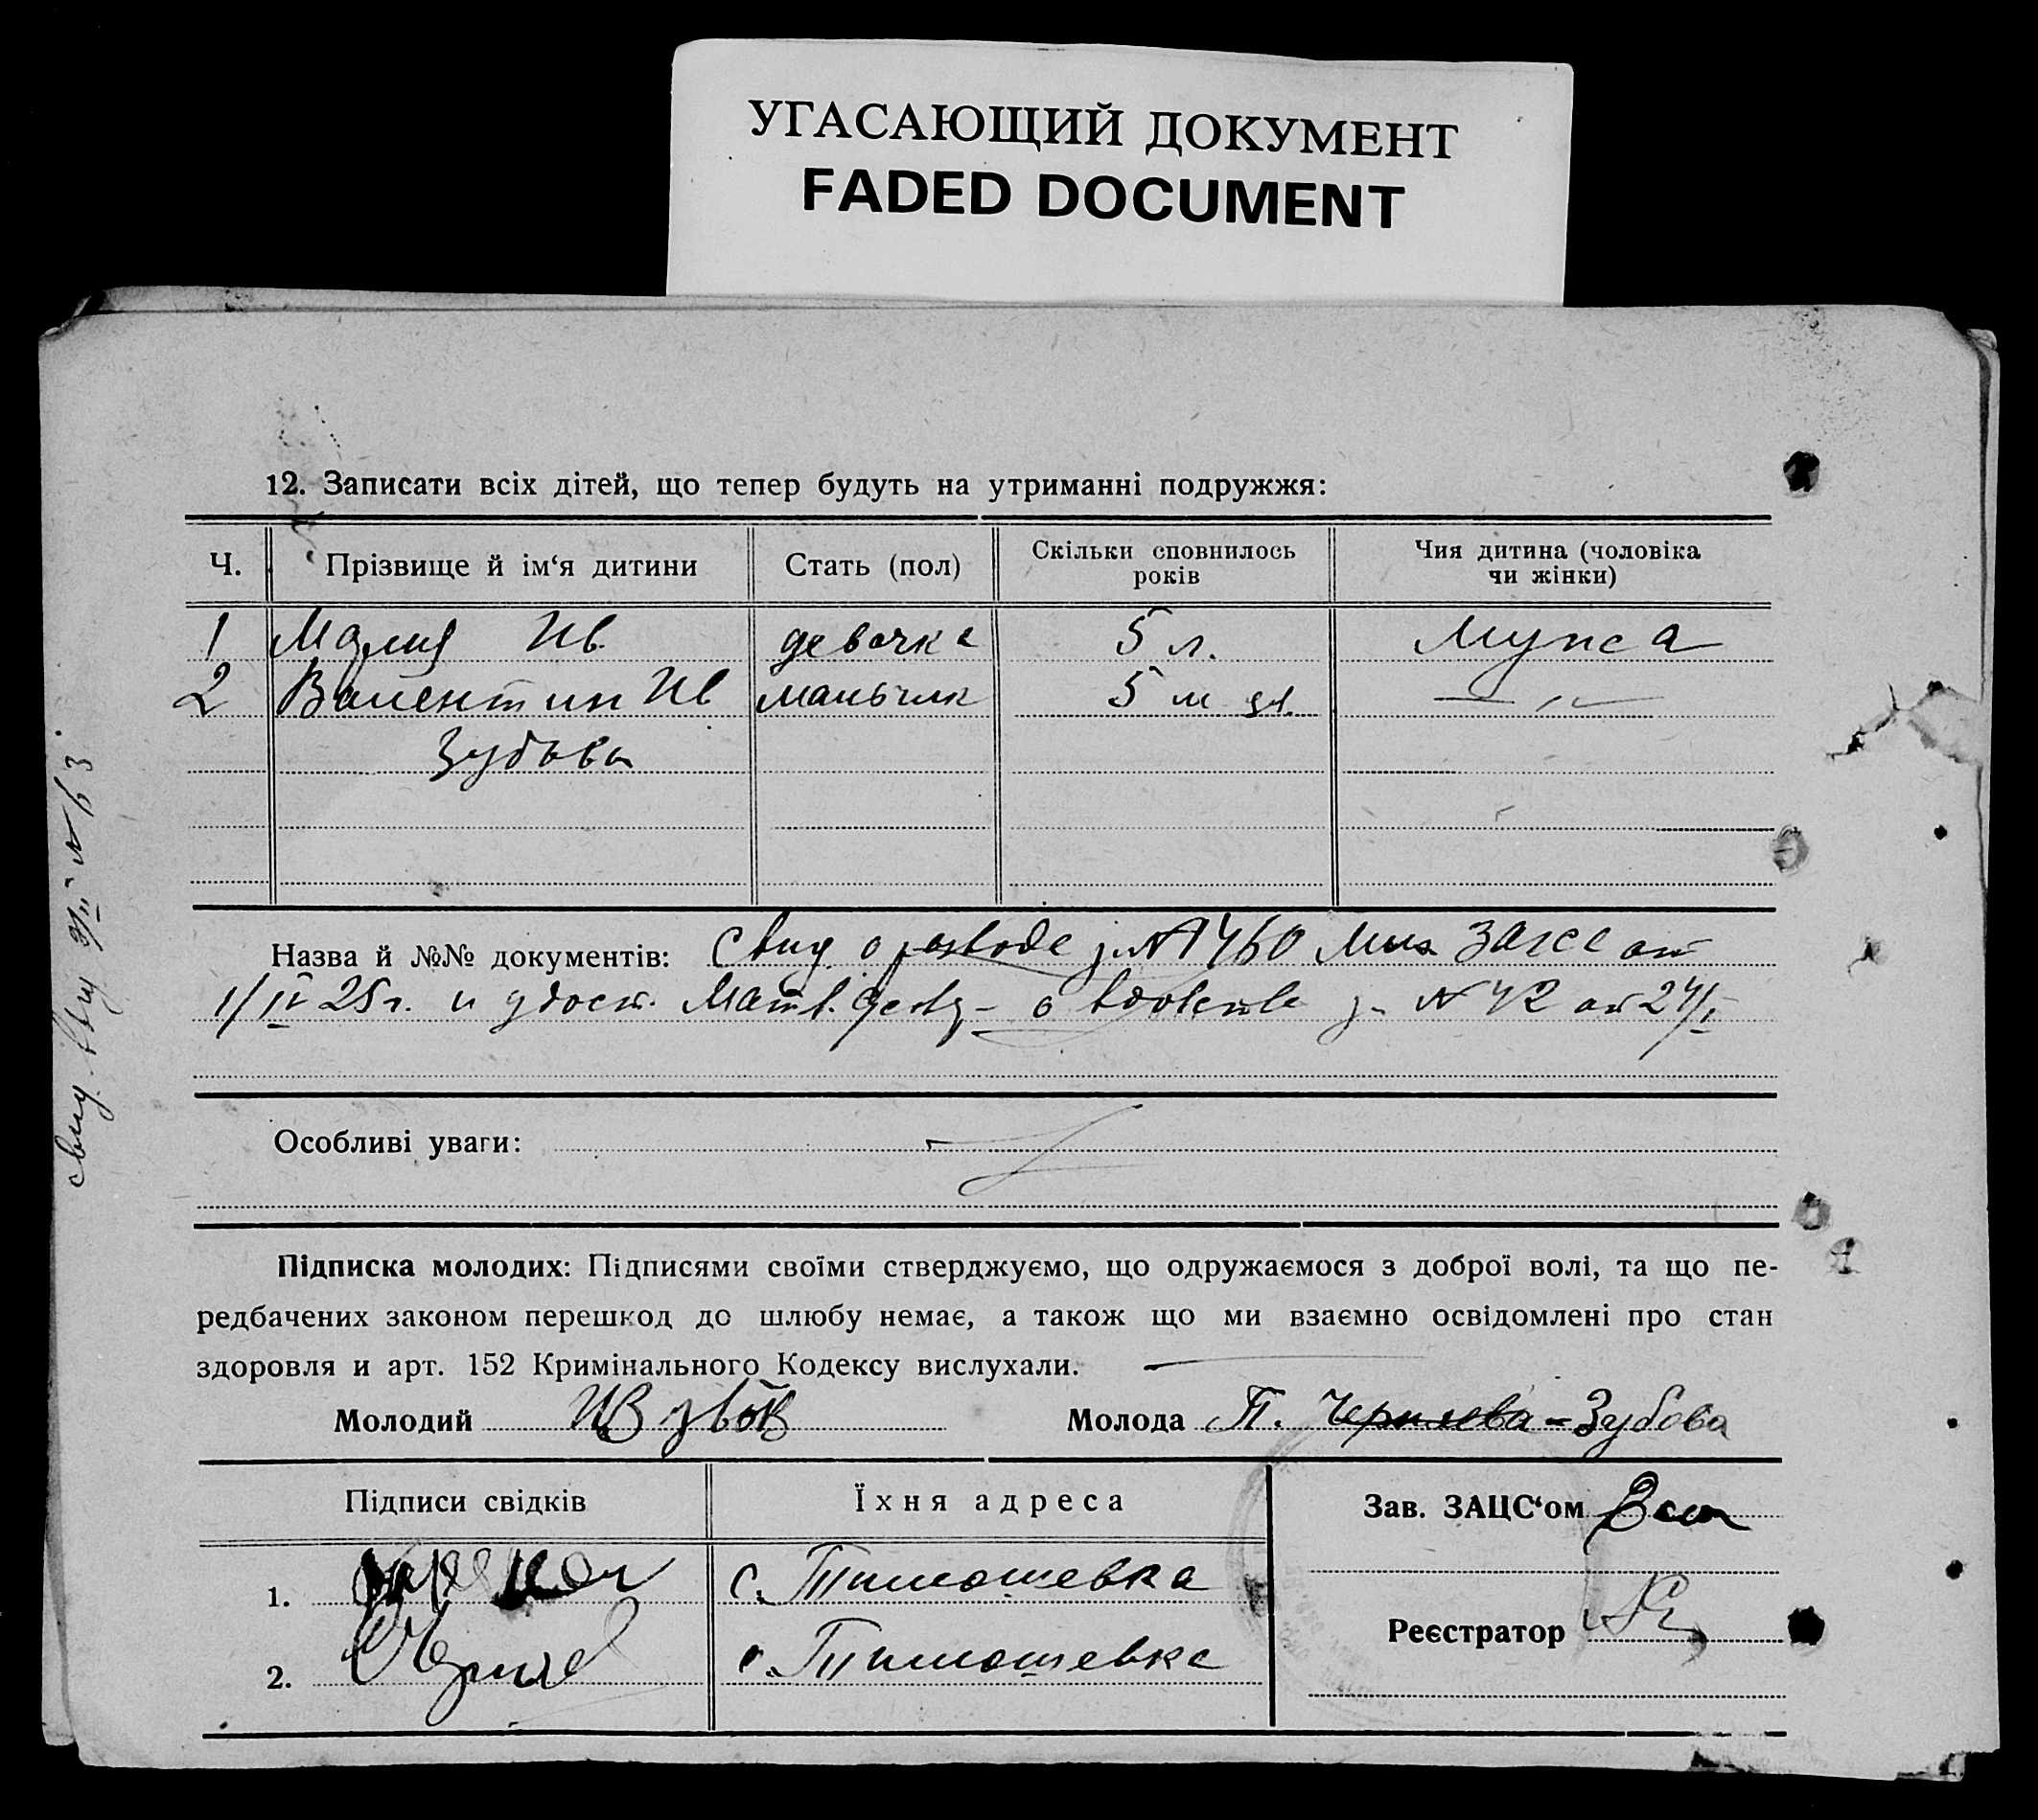 УГАСАЮЩИЙ ДОКУМЕНТ
FADED DOCUMENT
12. Записати всіх дітей, що тепер будуть на утриманні подружжя:
Ч.
Прізвище й ім‘я дитини
Стать (пол)
Скільки сповнилось
років
Чия дитина (чоловіка
чи жінки)
1 Мария Ив. девочка 5 л. мужа
2 Валентин Ив мальчик 5 м — " —
Зубовы
Назва й №№ документів: Свид о разводе за № 1460 ЗАГСа от
1/IV 25 г. и удост. о вдовстве за № 42 от 24/I
Особливі уваги:
Підписка молодих: Підписями своїми стверджуємо, що одружаємося з доброї волі, та що пе-
редбачених законом перешкод до шлюбу немає, а також що ми взаємно освідомлені про стан
здоровля и арт. 152 Кримінального Кодексу вислухали.
Молодий
Молода П. Чернлева-Зубова
Підписи свідків
Їхня адреса
Зав. ЗАЦС‘ом
1. с. Тимошевка
Реєстратор
2. с. Тимошевка
свид.